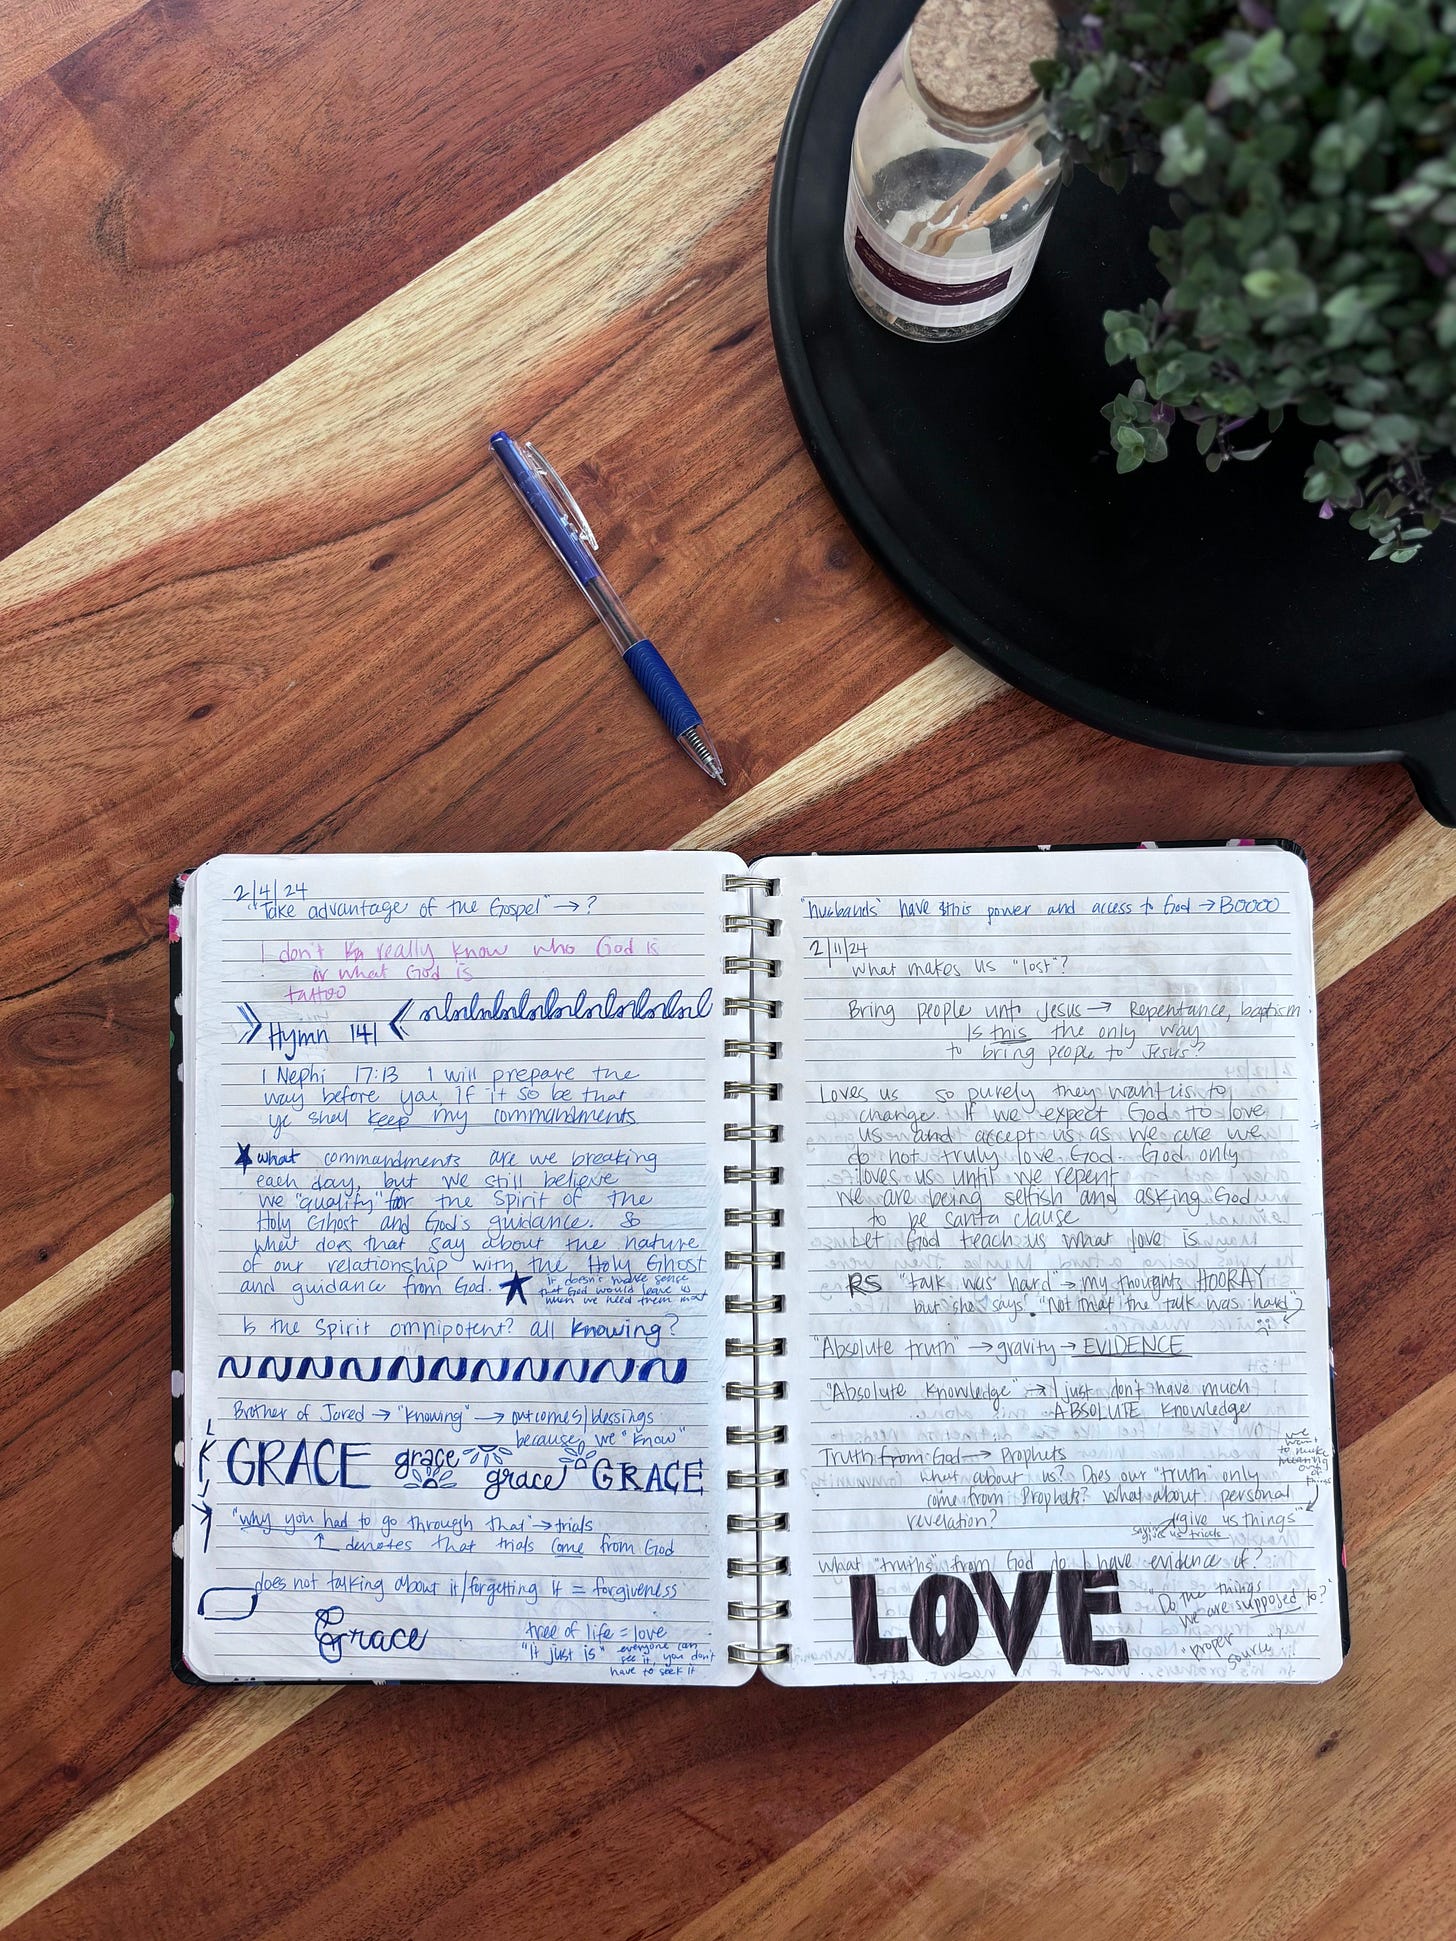 2/4/24
"Take advantage of the Gospel" → ?
I don't really know who God is
or what God is
tattoo
Hymn 141
1 Nephi 17:13 I will prepare the
way before you, if it so be that
ye shall keep my commandments
★ what commandments are we breaking
each day, but we still believe
we "qualify" for the Spirit of the
Holy Ghost and God's guidance. So
what does that say about the nature
of our relationship with the Holy Ghost
and guidance from God. ★
it doesn't make sense
that God would leave us
when we need them most
Is the Spirit omnipotent? all knowing?
Brother of Jared → "knowing" → outcomes/blessings
because we "know"
GRACE grace grace GRACE
"why you had to go through that" → trials
↑ denotes that trials come from God
does not talking about it/forgetting it = forgiveness
Grace
tree of life = love
"It just is" everyone can
see it, you don't
have to seek it
"husbands" have this power and access to God → BOOOO
2/11/24
what makes us "lost"?
Bring people unto Jesus → Repentance, baptism
Is this the only way
to bring people to Jesus?
Loves us so purely they want us to
change. If we expect God to love
us and accept us as we are we
do not truly love God. God only
loves us until we repent
We are being selfish and asking God
to be santa clause
Let God teach us what love is
RS "talk was hard" → my thoughts HOORAY
but she says "Not that the talk was hard"
"Absolute truth" → gravity → EVIDENCE
"Absolute knowledge" → I just don't have much
ABSOLUTE knowledge
Truth from God → Prophets
what about us? Does our "truth" only
come from Prophets? What about personal
revelation?
we
want
to make
meaning
out
of
things
"give us things"
gives us trials
what "truths" from God do I have evidence of?
LOVE
"Do the things
we are supposed to?"
"proper
source"